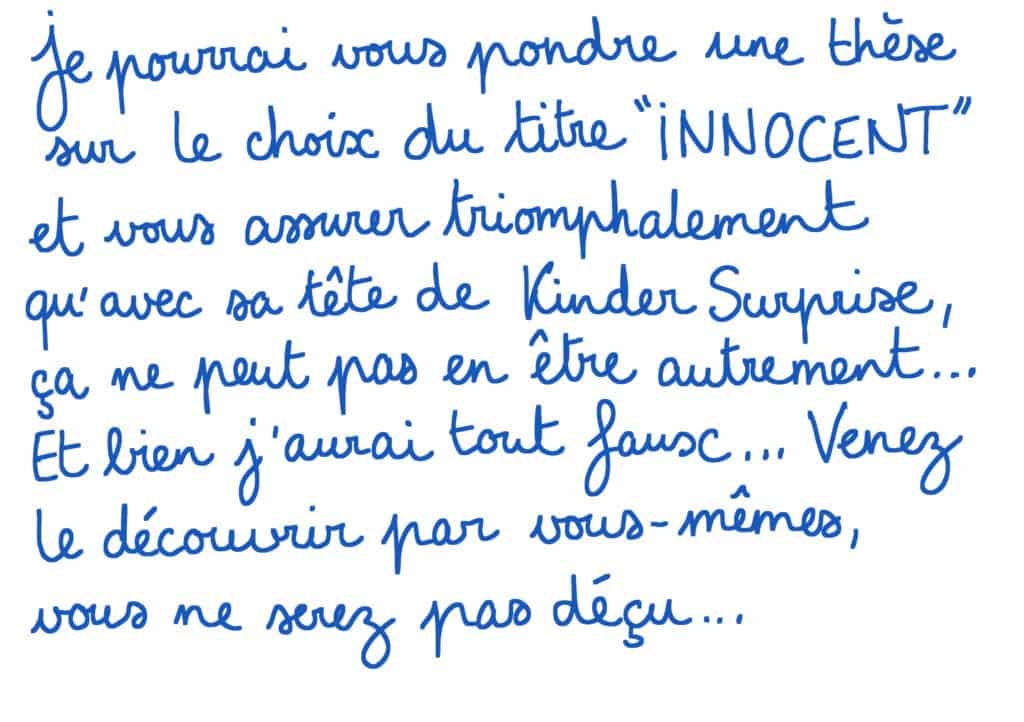 Je pourrai vous pondre une thèse
sur le choix du titre "INNOCENT"
et vous assurer triomphalement
qu'avec sa tête de Kinder Surprise,
ça ne peut pas en être autrement...
Et bien j'aurai tout faux... Venez
le découvrir par vous-mêmes,
vous ne serez pas déçu...